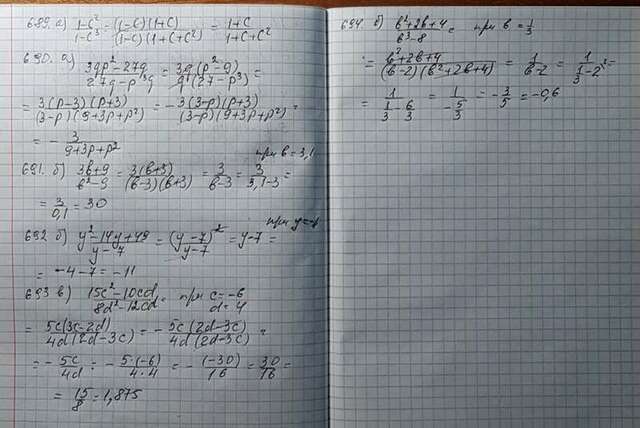 689. а) 1-c²/1-c³ = (1-c)(1+c)/(1-c)(1+c+c²) = 1+c/1+c+c²
690. а) 3qp²-27q/27q-p³q = 3q(p²-9)/q(27-p³) =
= 3(p-3)(p+3)/(3-p)(9+3p+p²) = -3(3-p)(p+3)/(3-p)(9+3p+p²) =
= -3/9+3p+p²
при в = 3,1
691. б) 3в+9/в²-9 = 3(в+3)/(в-3)(в+3) = 3/в-3 = 3/3,1-3 =
= 3/0,1 = 30
при y=-4
692 б) y²-14y+49/y-7 = (y-7)²/y-7 = y-7 =
= -4-7 = -11
693 в) 15c²-10cd/8d²-12cd = при c=-6
d=4
= 5c(3c-2d)/4d(2d-3c) = -5c(2d-3c)/4d(2d-3c) =
= -5c/4d = -5·(-6)/4·4 = -(-30)/16 = 30/16 =
= 15/8 = 1,875
694. б) в²+2в+4/в³-8 = при в = 1/3
= в²+2в+4/(в-2)(в²+2в+4) = 1/в-2 = 1/1/3-2 =
= 1/1/3-6/3 = 1/-5/3 = -3/5 = -0,6